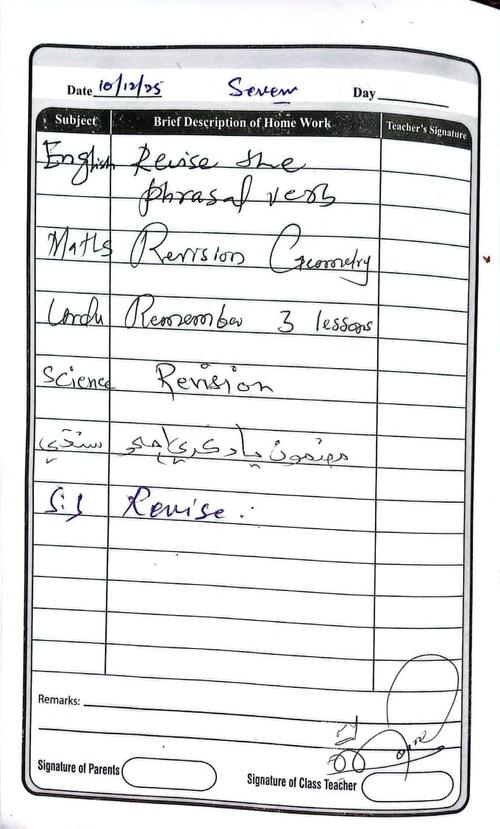 Date 10/12/25 Seven Day
Subject Brief Description of Home Work Teacher's Signature
English Revise the
phrasal verb
Maths Revision Geometry
Urdu Remember 3 lessons
Science Revision
سنڌي مضمون ياد ڪري اچو
S.S Revise :
Remarks:
Signature of Parents Signature of Class Teacher